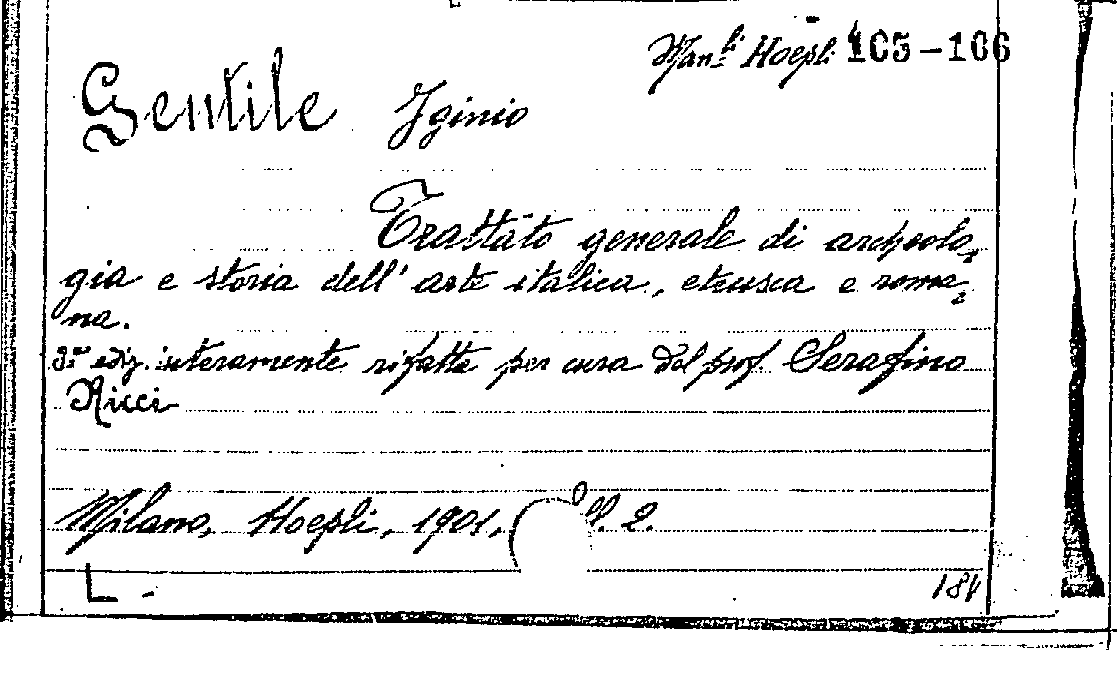 Man.li Hoepli 105-106
Gentile Iginio
Trattato generale di archeolo=
gia e storia dell' arte italica, etrusca e roma=
na.
3a ediz. interamente rifatta per cura del prof. Serafino
Ricci
Milano, Hoepli, 1901, oll. 2.